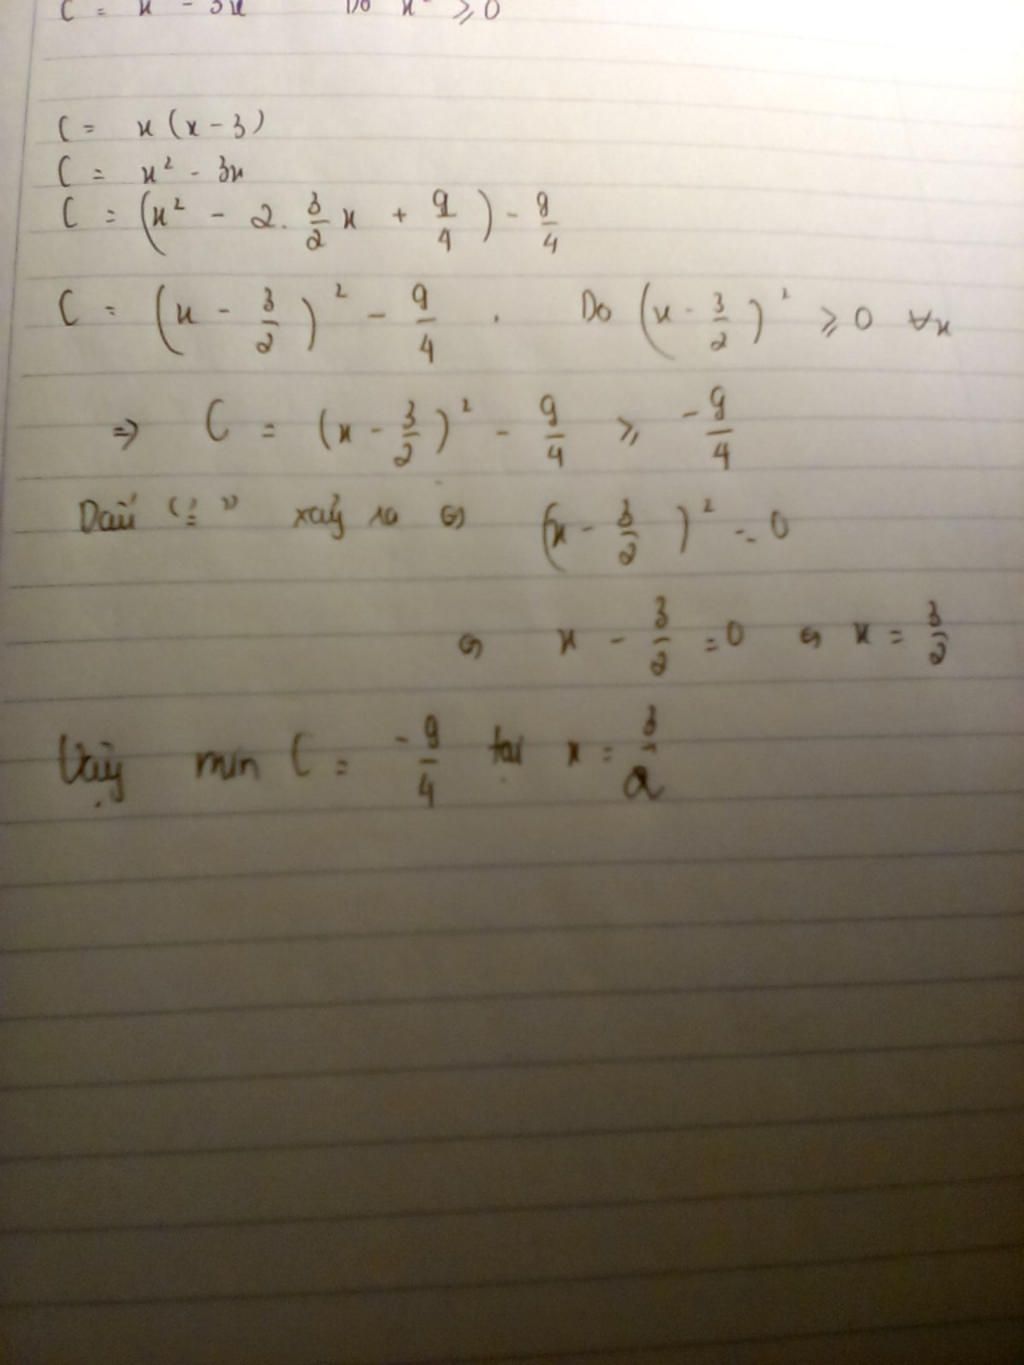 C = x² - 3x Do x² ≥ 0
C = x(x - 3)
C = x² - 3x
C = (x² - 2. 3/2 x + 9/4) - 9/4
C = (x - 3/2)² - 9/4 . Do (x - 3/2)² ≥ 0 ∀x
⇒ C = (x - 3/2)² - 9/4 ≥ -9/4
Dấu "=" xảy ra ⇔ (x - 3/2)² = 0
⇔ x - 3/2 = 0 ⇔ x = 3/2
Vậy min C = -9/4 tại x = 3/2